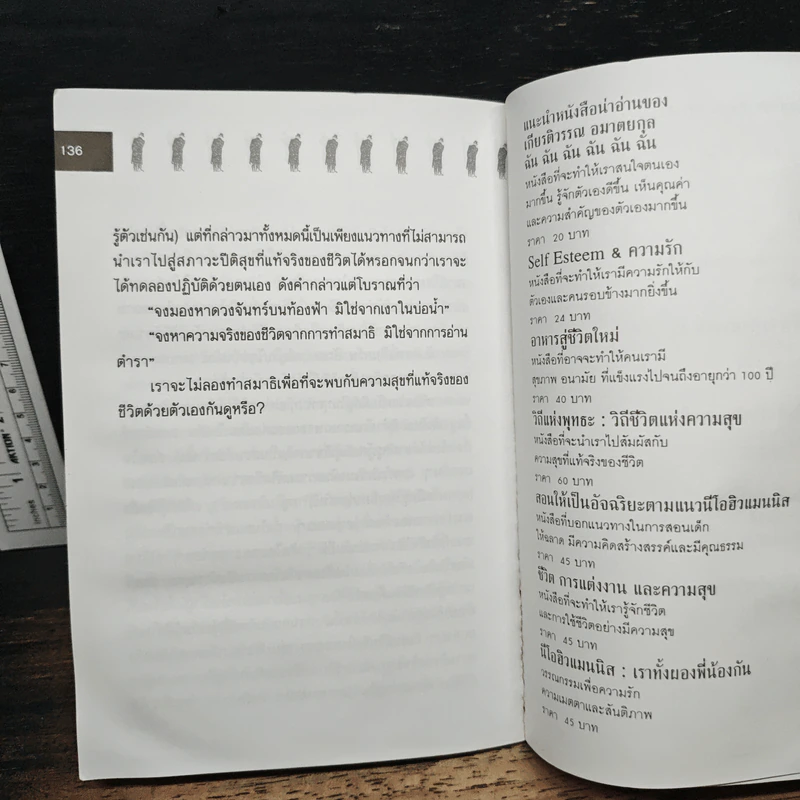 136
รู้ตัวเช่นกัน) แต่ที่กล่าวมาทั้งหมดนี้เป็นเพียงแนวทางที่ไม่สามารถ
นำเราไปสู่สภาวะปีติสุขที่แท้จริงของชีวิตได้หรอกจนกว่าเราจะ
ได้ทดลองปฏิบัติด้วยตนเอง ดังคำกล่าวแต่โบราณที่ว่า
"จงมองหาดวงจันทร์บนท้องฟ้า มิใช่จากเงาในบ่อน้ำ"
"จงหาความจริงของชีวิตจากการทำสมาธิ มิใช่จากการอ่าน
ตำรา"
เราจะไม่ลองทำสมาธิเพื่อที่จะพบกับความสุขที่แท้จริงของ
ชีวิตด้วยตัวเองกันดูหรือ?
แนะนำหนังสือน่าอ่านของ
เกียรติวรรณ อมาตยกุล
ฉัน ฉัน ฉัน ฉัน ฉัน ฉัน
หนังสือที่จะทำให้เราสนใจตนเอง
มากขึ้น รู้จักตัวเองดีขึ้น เห็นคุณค่า
และความสำคัญของตัวเองมากขึ้น
ราคา 20 บาท
Self Esteem & ความรัก
หนังสือที่จะทำให้เรามีความรักให้กับ
ตัวเองและคนรอบข้างมากยิ่งขึ้น
ราคา 24 บาท
อาหารสู่ชีวิตใหม่
หนังสือที่อาจจะทำให้คนเรามี
สุขภาพ อนามัย ที่แข็งแรงไปจนถึงอายุกว่า 100 ปี
ราคา 40 บาท
วิถีแห่งพุทธะ : วิถีชีวิตแห่งความสุข
หนังสือที่จะนำเราไปสัมผัสกับ
ความสุขที่แท้จริงของชีวิต
ราคา 60 บาท
สอนให้เป็นอัจฉริยะตามแนวนีโอฮิวแมนนิส
หนังสือที่บอกแนวทางในการสอนเด็ก
ให้ฉลาด มีความคิดสร้างสรรค์และมีคุณธรรม
ราคา 45 บาท
ชีวิต การแต่งงาน และความสุข
หนังสือที่จะทำให้เรารู้จักชีวิต
และการใช้ชีวิตอย่างมีความสุข
ราคา 45 บาท
นีโอฮิวแมนนิส : เราทั้งผองพี่น้องกัน
วรรณกรรมเพื่อความรัก
ความเมตตาและสันติภาพ
ราคา 45 บาท